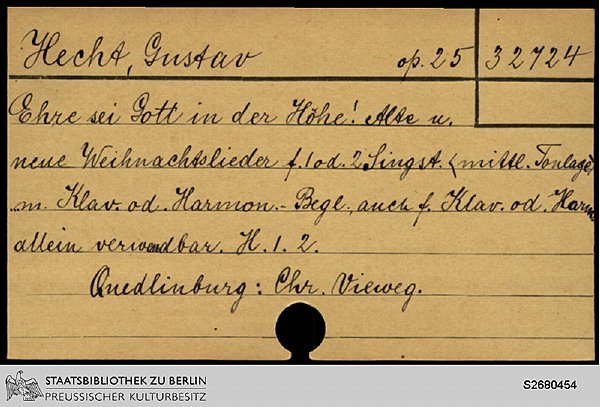 Hecht, Gustav op. 25 32724
Ehre sei Gott in der Höhe! Alte u.
neue Weihnachtslieder f. 1 od. 2 Singst. (mittl. Tonlage)
m. Klav. od. Harmon.-Begl., auch f. Klav. od. Harm.
allein verwendbar. H. 1. 2.
Quedlinburg: Chr. Vieweg.
STAATSBIBLIOTHEK ZU BERLIN
PREUSSISCHER KULTURBESITZ
S2680454